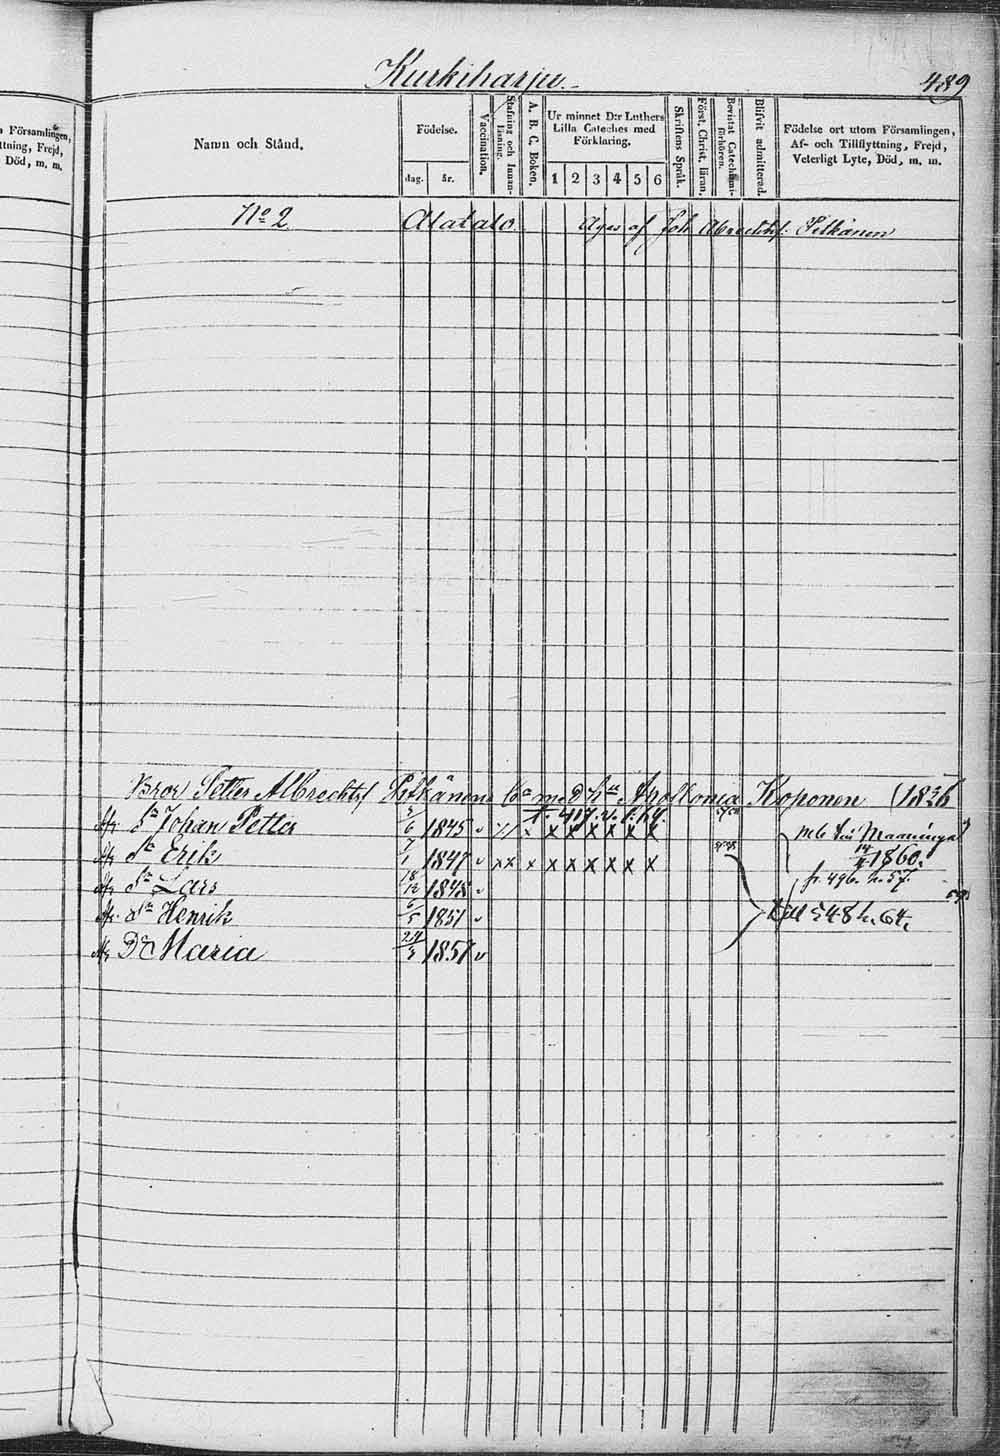 Kurkiharju
489
Församlingen,
ttning, Frejd,
Död, m. m.
Namn och Stånd.
Födelse.
dag.
år.
Vaccination.
Stafning och Innanläsning.
A. B. C. Boken.
Ur minnet D:r Luthers Lilla Cateches med Förklaring.
1 2 3 4 5 6
Skriftens Språk.
Först. Christ. läran.
Bevistat Catechismiförhören.
Blifvit admitterad.
Födelse ort utom Församlingen,
Af- och Tillflyttning, Frejd,
Veterligt Lyte, Död, m. m.
No 2 Alatalo Äges af Joh Abrechtsf. Pitkänen
Bror Petter Albrechtsf Pitkänens Ca med Apollonia Koponen (1826
Sn Johan Petter 6 1845 v x x x x x x
Sn Erik 7/1 1847 v x x x x x x x x x
Maaninga
1860
Sn Lars 18/12 1848 v
fr. 496. 57.
Sn Henrik 6/5 1851 v
till 548 64.
Dr Maria 24/3 1857 v